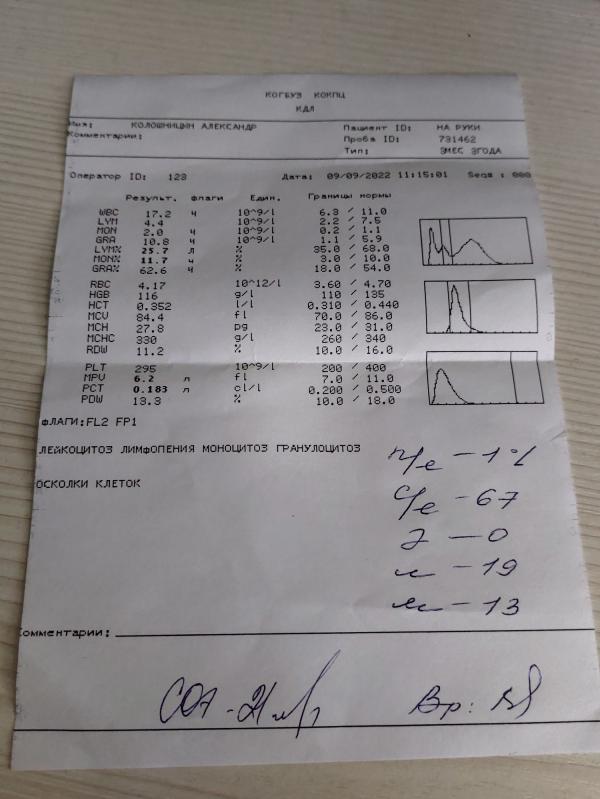 КОГБУЗ КОКПЦ
КДЛ
Имя: КОЛОШНИЦЫН АЛЕКСАНДР Пациент ID: НА РУКИ
Комментарии: Проба ID: 731462
Тип: 3МЕС 3ГОДА
Оператор ID: 123 Дата: 09/09/2022 11:15:01 Seq# : 000
Результ. флаги Един. Границы нормы
WBC 17.2 ч 10^9/l 6.3 / 11.0
LYM 4.4 10^9/l 2.2 / 7.5
MON 2.0 ч 10^9/l 0.2 / 1.1
GRA 10.8 ч 10^9/l 1.1 / 5.9
LYM% 25.7 л % 35.0 / 68.0
MON% 11.7 ч % 3.0 / 10.0
GRA% 62.6 ч % 18.0 / 54.0
RBC 4.17 10^12/l 3.60 / 4.70
HGB 116 g/l 110 / 135
HCT 0.352 l/l 0.310 / 0.440
MCV 84.4 fl 70.0 / 86.0
MCH 27.8 pg 23.0 / 31.0
MCHC 330 g/l 260 / 340
RDW 11.2 % 10.0 / 16.0
PLT 295 10^9/l 200 / 400
MPV 6.2 л fl 7.0 / 11.0
PCT 0.183 л cl/l 0.200 / 0.500
PDW 13.3 % 10.0 / 18.0
ФЛАГИ:FL2 FP1
ЛЕЙКОЦИТОЗ ЛИМФОПЕНИЯ МОНОЦИТОЗ ГРАНУЛОЦИТОЗ
П/е - 1 %
ОСКОЛКИ КЛЕТОК
С/е - 67
Э - 0
л - 19
м - 13
Комментарии:
СОЭ -
Вр: